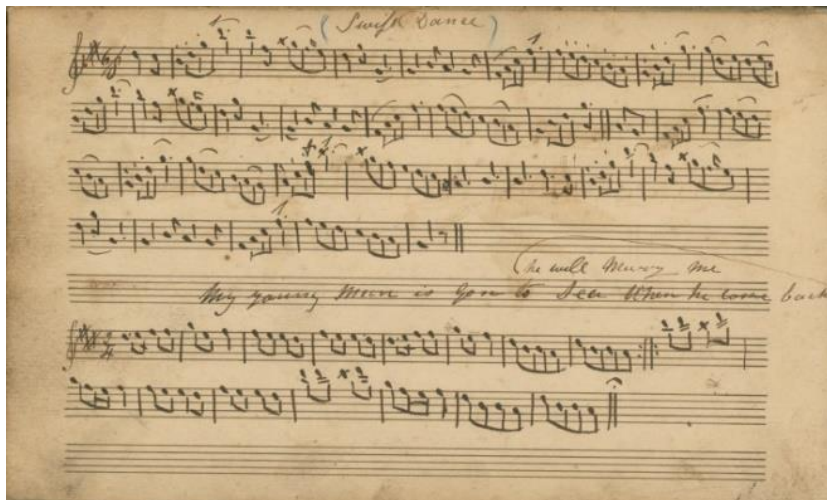 (Swiſs Dance)
(he will me
My young man is gon to Sea When he come back